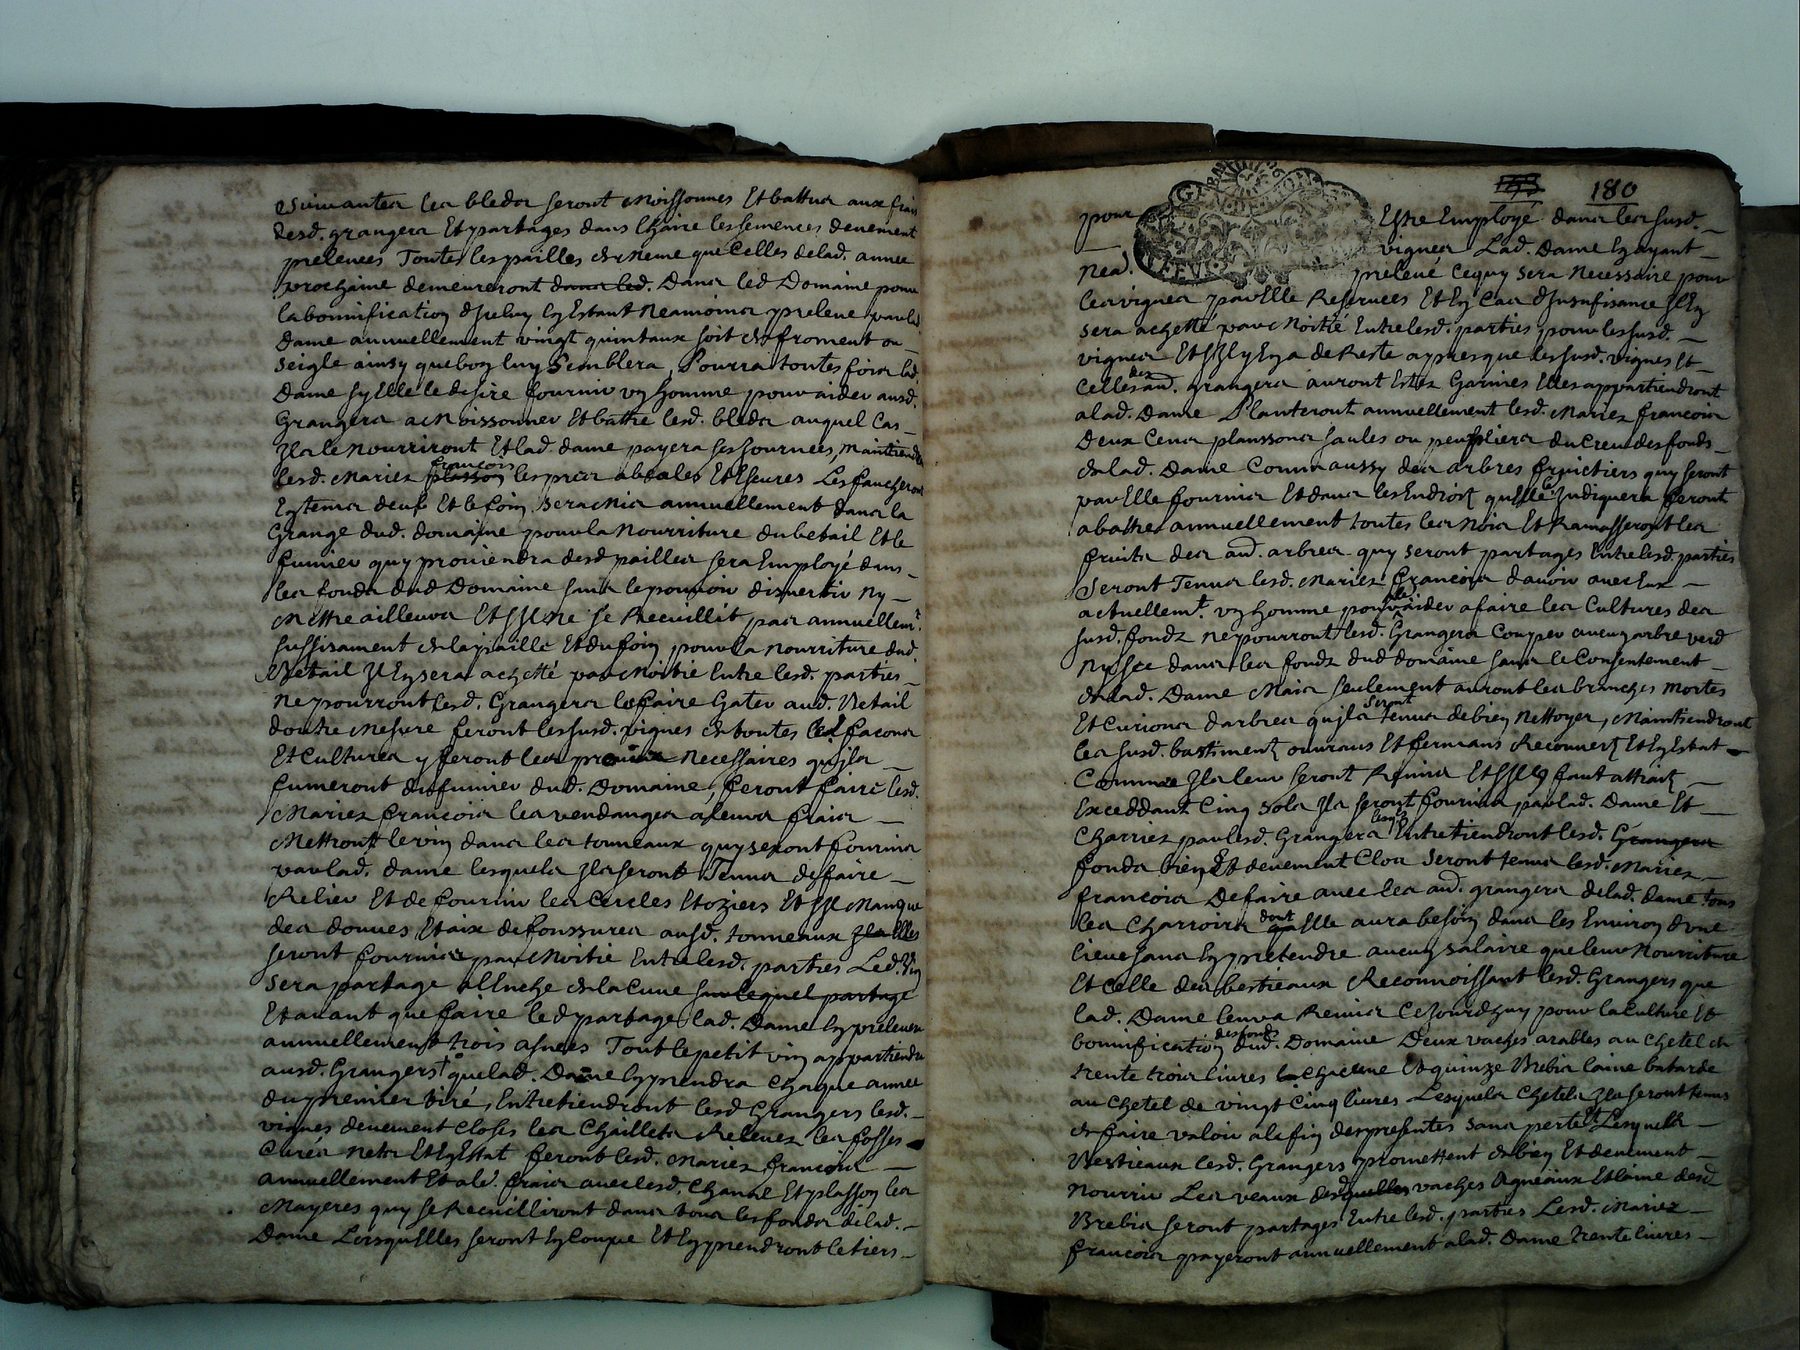 suivantes les bleds seront moissonnes Et battus aux frais
desd. grangers Et partages dans l'haire les semences devement
prelevees Toutes les pailles de meme que Celles de lad. annee
prochaine demeureront dans led. Dans led Domaine pour
la bonnification d'iceluy En Estant neamoins preleve par lad.
Dame annuellement vingt quintaux soit de froment ou
seigle ainsy que bon luy Semblera, Pourra toutes fois lad.
Dame sy Elle le desire fournir un homme pour aider ausd.
Grangers a moissonner Et battre lesd. bleds auquel Cas
Ils le nourriront Et lad. dame payera ses Journees, maintiendront
lesd. Mariez françois plasson les prez abeales Et Essures Les faucheront
En tems deuf Et le foin sera mis annuellement dans la
Grange dud. domaine pour la Nourriture du betail Et le
fumier quy proviendra desd pailles sera Employé dans
les fonds dud Domaine sans le pouvoir divertir ny
Mettre ailleurs Et s'Il ne se Recuillit pas annuellemt.
suffisament de la paille Et du foin pour la nourriture dud.
Betail Il En sera achetté par Moitié Entre lesd. parties
Ne pourront lesd. Grangers le faire Gater aud. Betail
d'outre mesure feront les susd. vignes de toutes les facons
Et Cultures y feront les provins necessaires qu'jls
fumeront du fumier dud. Domaine, feront faire lesd.
Mariez francois les vendanges a leurs frais
Mettront le vin dans les tonneaux quy seront fournis
par lad. dame lesquels Ils seront Tenus de faire
Relier Et de fournir les Cercles Et oziers Et s'Il Manque
des douves Et aix de fonssures ausd. tonneaux Ils Elles
seront fournies par Moitié Entre lesd. parties Led. Vin
sera partage a l'Anche de la Cuve sur lequel partage
Et avant que faire led partage lad. Dame En prelevera
annuellement trois asnees Tout le petit vin appartiendra
ausd. Grangers que lad. Dame En prendra Chaque annee
du premier tiré, Entretiendront lesd Grangers lesd.
vignes devement Closes les Chaillets Relevez les fosses
Curés nets Et En Estat feront lesd. Mariez francois
annuellement Et a led. frais avec lesd. Channe Et plasson les
Mayeres quy se Recuilliront dans tous les fonds de lad.
Dame Lorsqu'Elles seront En Coupe Et En prendront le tiers
180
pour Estre Employé dans les susd.
vignes Lad. Dame En ayant
nead. prelevé Ce quy sera Necessaire pour
les vignes par Elle Reservees Et En Cas d'Insufisance Il En
sera achetté par Moitié Entre lesd. parties pour les susd.
vignes Et s'Il y En a de Reste apres que les susd. vignes Et
Celles des aud. grangers auront Estez Garnies Elles appartiendront
a lad. Dame Planteront annuellement lesd. Mariez francois
Deux Cens planssons saules ou peupliers du Creu des fonds
de lad. Dame Comm'aussy des arbres fruictiers quy seront
par Elle fournis Et dans les Endroits qu'Elle le Indiquera feront
abattre annuellement toutes les Nois Et Ramasseront les
fruits des aud. arbres quy seront partages Entre lesd. parties
Seront Tenus lesd. Mariez francois d'avoir avec Eux
actuellemt. un homme pour les aider a faire les Cultures des
susd. fonds ne pourront lesd. Grangers Couper aucun arbre verd
Ny sec dans les fonds dud domaine sans le Consentement
de lad. Dame Mais seulement auront les branches mortes
Et Curions d'arbres qu'jls seront tenus de bien Nettoyer, Maintiendront
les susd. bastiments ouvrans Et fermans Reconverts Et En Estat
Comme Ils leur seront Remis Et s'Il y faut attraits
Exceddant Cinq sols Ils seront fournis par lad. Dame Et
Charriez par lesd. Grangers Entretiendront lesd. Grangers
fonds bien Et devement Clos seront tenus lesd. Mariez
francois De faire avec les aud. grangers de lad. dame tous
les Charrois dont Elle aura besoin dans les Environ d'une
lieue sans En pretendre aucun salaire que leur Nourriture
Et Celle des bestieaux Reconnoissant lesd. Grangers que
lad. Dame leur a Remis Cejourd'huy pour la Culture Et
bonnification des fonds dud. Domaine Deux vaches arables au Chetel de
trente trois livres Chacune Et quinze Brebis laine batarde
au Chetel de vingt Cinq livres Lesquels Chetels Ils seront tenus
de faire valoir a la fin des presentes sans perte Et Lesquels
Bestieaux lesd. Grangers promettent de bien Et devement
Nourrir Les veaux desquelles vaches Agneaux Et laine desd
Brebis seront partages Entre lesd. parties Lesd. Mariez
francois payeront annuellement a lad. Dame trente livres